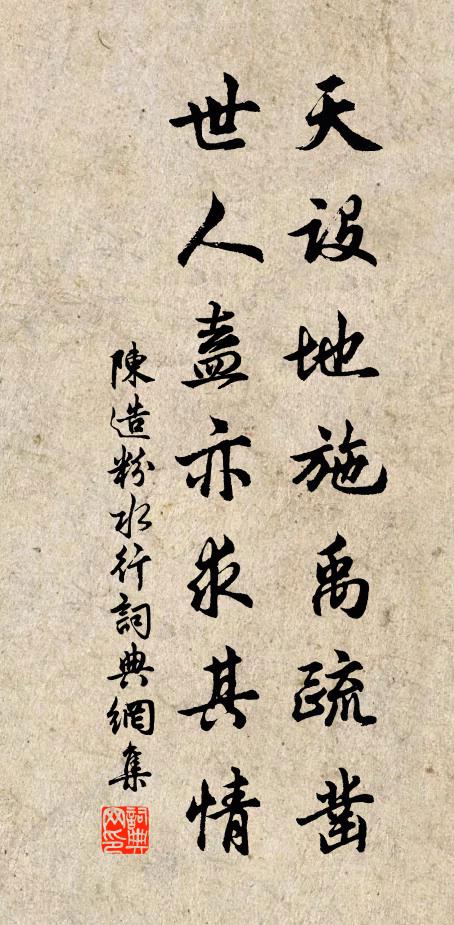 天設地施禹疏凿
世人盍亦求其情
陳造粉水行詞典網集
詞典网印